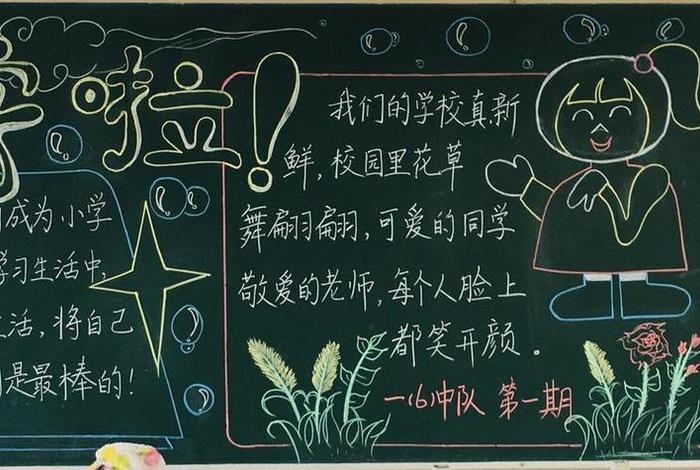 啦!
成为小学
学习生活中,
活,将自己
是最棒的!
我们的学校真新
鲜,校园里花草
舞翩翩,可爱的同学
敬爱的老师,每个人脸上
都笑开颜。
一(6)中队 第一期